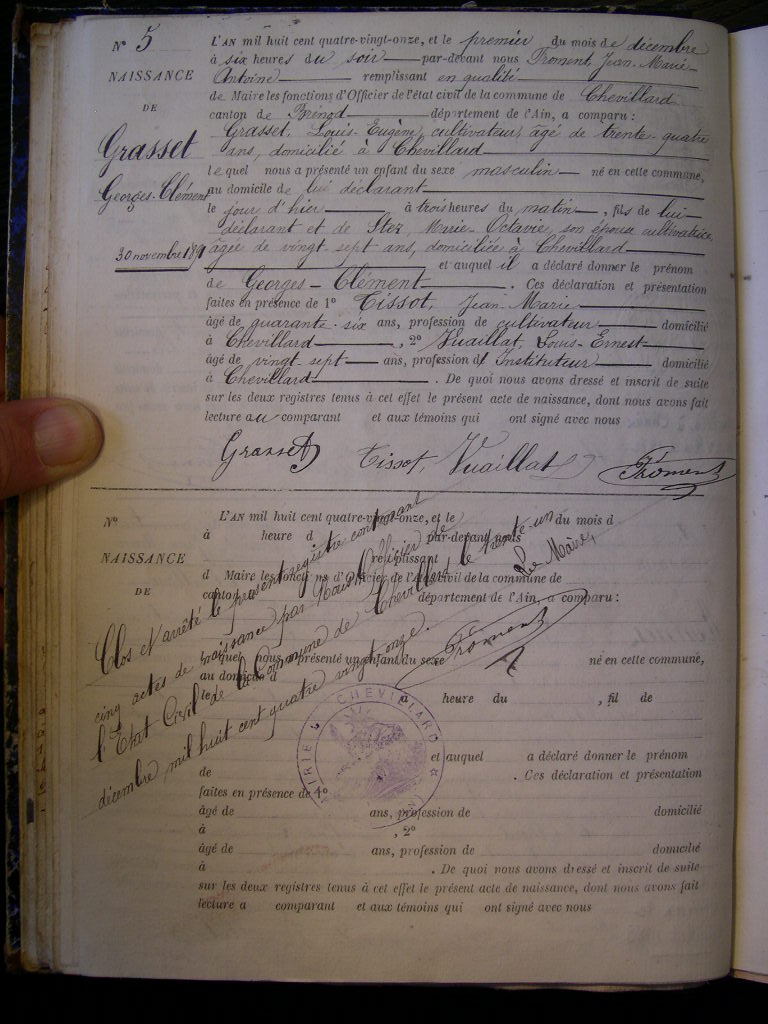 N° 5
NAISSANCE
DE
Grasset
Georges-Clément
30 novembre 1891
L'AN mil huit cent quatre-vingt-onze, et le premier du mois de décembre
à six heures du soir par-devant nous Froment, Jean-Marie-
Antoine remplissant en qualité
de Maire les fonctions d'Officier de l'état civil de la commune de Chevillard
canton de Brénod département de l'Ain, a comparu :
Grasset, Louis-Eugène, cultivateur, âgé de trente-quatre
ans, domicilié à Chevillard
lequel nous a présenté un enfant du sexe masculin né en cette commune,
au domicile de lui déclarant
le jour d'hier à trois heures du matin, fils de lui-
déclarant et de Stez, Marie-Octavie, son épouse cultivatrice
âgée de vingt-sept ans, domiciliée à Chevillard
et auquel il a déclaré donner le prénom
de Georges-Clément . Ces déclaration et présentation
faites en présence de 1° Tissot, Jean-Marie
âgé de quarante-six ans, profession de cultivateur domicilié
à Chevillard , 2° Vuaillat, Louis-Ernest
âgé de vingt-sept ans, profession d'Instituteur domicilié
à Chevillard . De quoi nous avons dressé et inscrit de suite
sur les deux registres tenus à cet effet le présent acte de naissance, dont nous avons fait
lecture au comparant et aux témoins qui ont signé avec nous
Grasset Tissot, Vuaillat Froment
N°
NAISSANCE
DE
L'AN mil huit cent quatre-vingt-onze, et le du mois d
à heure d par-devant nous
remplissant
d Maire les fonctions d'Officier de l'état civil de la commune de
canton d département de l'Ain, a comparu :
lequel nous a présenté un enfant du sexe né en cette commune,
au domicile d
le à heure du , fil de
et auquel a déclaré donner le prénom
de . Ces déclaration et présentation
faites en présence de 1°
âgé de ans, profession de domicilié
à , 2°
âgé de ans, profession de domicilié
à . De quoi nous avons dressé et inscrit de suite
sur les deux registres tenus à cet effet le présent acte de naissance, dont nous avons fait
lecture a comparant et aux témoins qui ont signé avec nous
Clos et arrêté le présent registre contenant
cinq actes de naissance par Nous Officier de
l'Etat Civil de la Commune de Chevillard le trente-un
décembre mil huit cent quatre vingt onze.
Le Maire,
Froment
MAIRIE CHEVILLARD